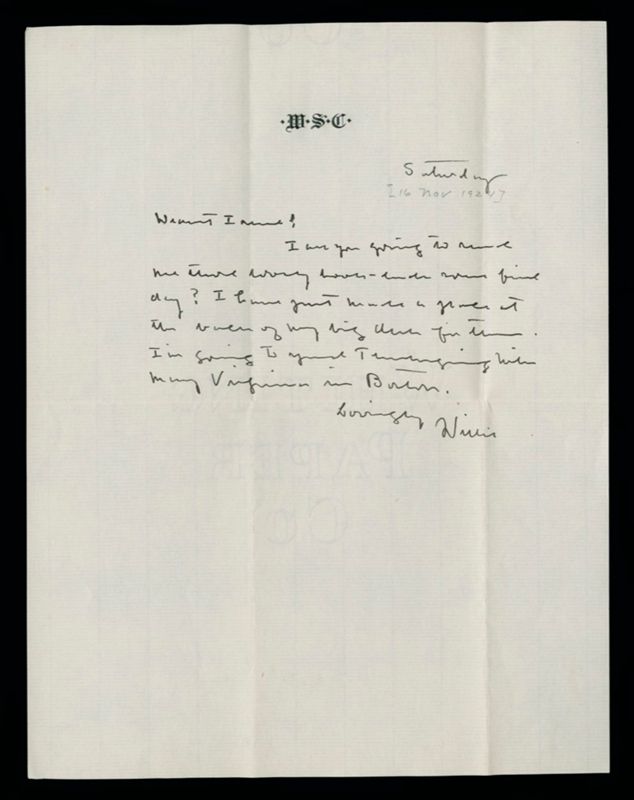 ·W·S·C·
Saturday
[16 Nov
Dearest Irene!
Are you going to send
me those lovely book-ends some fine
day? I have just made a place at
the back of my big desk for them.
I'm going to spend Thanksgiving with
Mary Virginia in Boston.
Lovingly
Willie
PAPER
Co